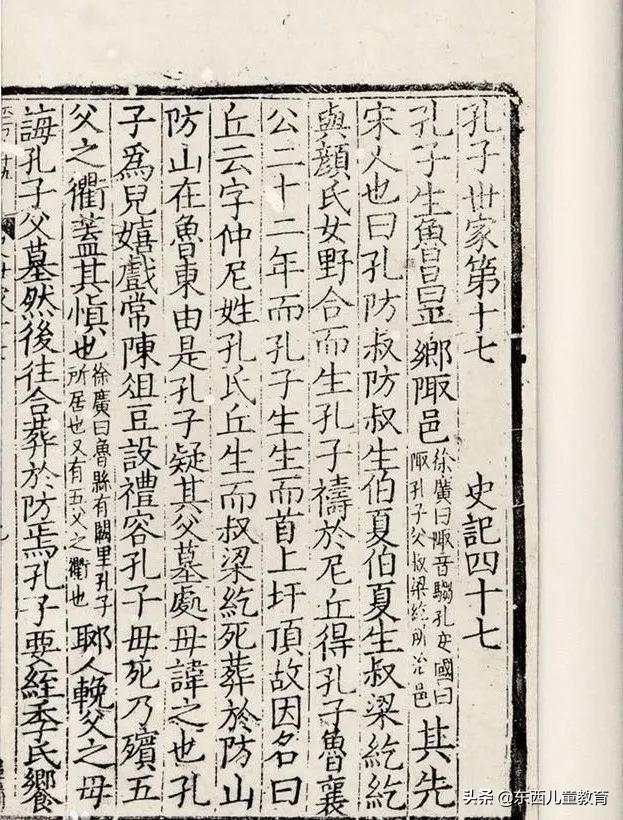 孔子世家第十七 史記四十七
孔子生魯昌平鄉陬邑徐廣曰陬音騶孔安國曰陬孔子父叔梁紇所治邑其先
宋人也曰孔防叔防叔生伯夏伯夏生叔梁紇紇
與顏氏女野合而生孔子禱於尼丘得孔子魯襄
公二十二年而孔子生生而首上圩頂故因名曰
丘云字仲尼姓孔氏丘生而叔梁紇死葬於防山
防山在魯東由是孔子疑其父墓處母諱之也孔
子爲兒嬉戲常陳俎豆設禮容孔子母死乃殯五
父之衢蓋其愼也徐廣曰魯縣有闕里孔子所居也又有五父之衢也郰人輓父之母
誨孔子父墓然後往合葬於防焉孔子要絰季氏饗
头条 @东西儿童教育